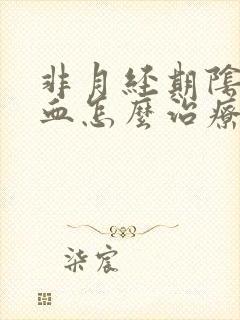 非月經期陰
血怎麼治療
柒宸